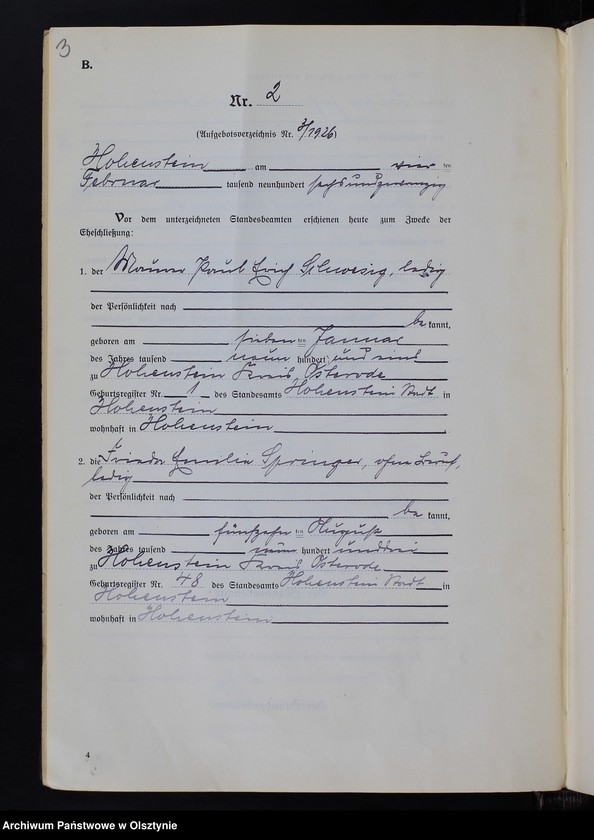 3
B.
Nr. 2
(Aufgebotsverzeichnis Nr. 3/1926)
Hohenstein am vier ten
Februar tausend neunhundert sechsundzwanzig
Vor dem unterzeichneten Standesbeamten erschienen heute zum Zwecke der
Eheschließung:
1. der Maurer Paul Erich Schwesig, ledig
der Persönlichkeit nach
be kannt,
geboren am sieben ten Januar
des Jahres tausend neun hundert und eins
zu Hohenstein Kreis Osterode
Geburtsregister Nr. 1 des Standesamts Hohenstein Stadt in
Hohenstein
wohnhaft in Hohenstein
2. die Frieda Emilie Springer, ohne Beruf,
ledig
der Persönlichkeit nach
be kannt,
geboren am fünfzehn ten August
des Jahres tausend neun hundert unddrei
zu Hohenstein Kreis Osterode
Geburtsregister Nr. 48 des Standesamts Hohenstein Stadt in
Hohenstein
wohnhaft in Hohenstein
4
Archiwum Państwowe w Olsztynie